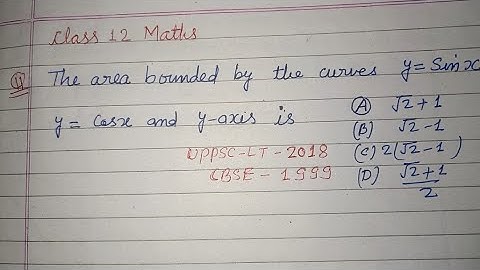 Class 12 Maths
Q The area bounded by the curves y = Sinx
y = Cosx and y-axis is (A) √2+1
(B) √2-1
UPPSC-LT-2018 (C) 2(√2-1)
CBSE - 1999 (D) √2+1/2